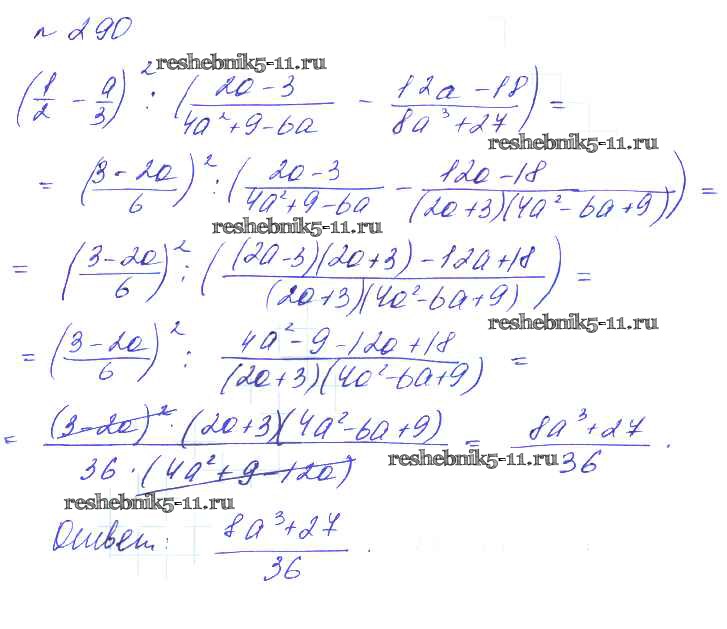 № 290
reshebnik5-11.ru
(1/2 - a/3)² : ((2a-3)/(4a²+9-6a) - (12a-18)/(8a³+27)) =
reshebnik5-11.ru
= ((3-2a)/6)² : ((2a-3)/(4a²+9-6a) - (12a-18)/((2a+3)(4a²-6a+9))) =
reshebnik5-11.ru
= ((3-2a)/6)² : (((2a-3)(2a+3)-12a+18)/((2a+3)(4a²-6a+9))) =
reshebnik5-11.ru
= ((3-2a)/6)² : (4a²-9-12a+18)/((2a+3)(4a²-6a+9)) =
= ((3-2a)²·(2a+3)(4a²-6a+9))/(36·(4a²+9-12a)) = (8a³+27)/36.
reshebnik5-11.ru
reshebnik5-11.ru
Ответ: (8a³+27)/36.